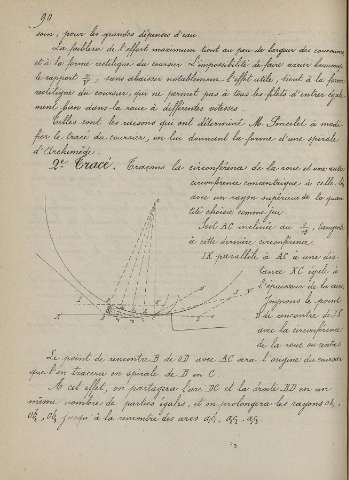 90
soin, pour les grandes dépenses d'eau.
La faiblesse de l'effort maximum tient au peu de largeur des couronnes
et à la forme rectiligne du coursier. L'impossibilité de faire varier beaucoup
le rapport v/V, sans abaisser notablement l'effet utile, tient à la forme
rectiligne du coursier, qui ne permet pas à tous les filets d'entrer égale-
ment bien dans la roue à différentes vitesses.
Telles sont les raisons qui ont déterminé M. Poncelet à modi-
fier le tracé du coursier, en lui donnant la forme d'une spirale
d'Archimède.
2e Tracé. Traçons la circonférence de la roue et une autre
circonférence concentrique à celle-là,
avec un rayon supérieur de la quan-
tité choisie comme jeu.
Soit AC inclinée au 1/10, tangente
à cette dernière circonférence.
IK parallèle à AC à une dis-
tance KC égale à
l'épaisseur de la eau.
Joignons le point
de rencontre de IK
avec la circonférence
de la roue au centre
Le point de rencontre B de OD avec AC sera l'origine du coursier
que l'on tracera en spirale de B en C.
A cet effet, on partagera l'arc DC et la droite BD en un
même nombre de parties égales, et on prolongera les rayons
jusqu'à la rencontre des arcs